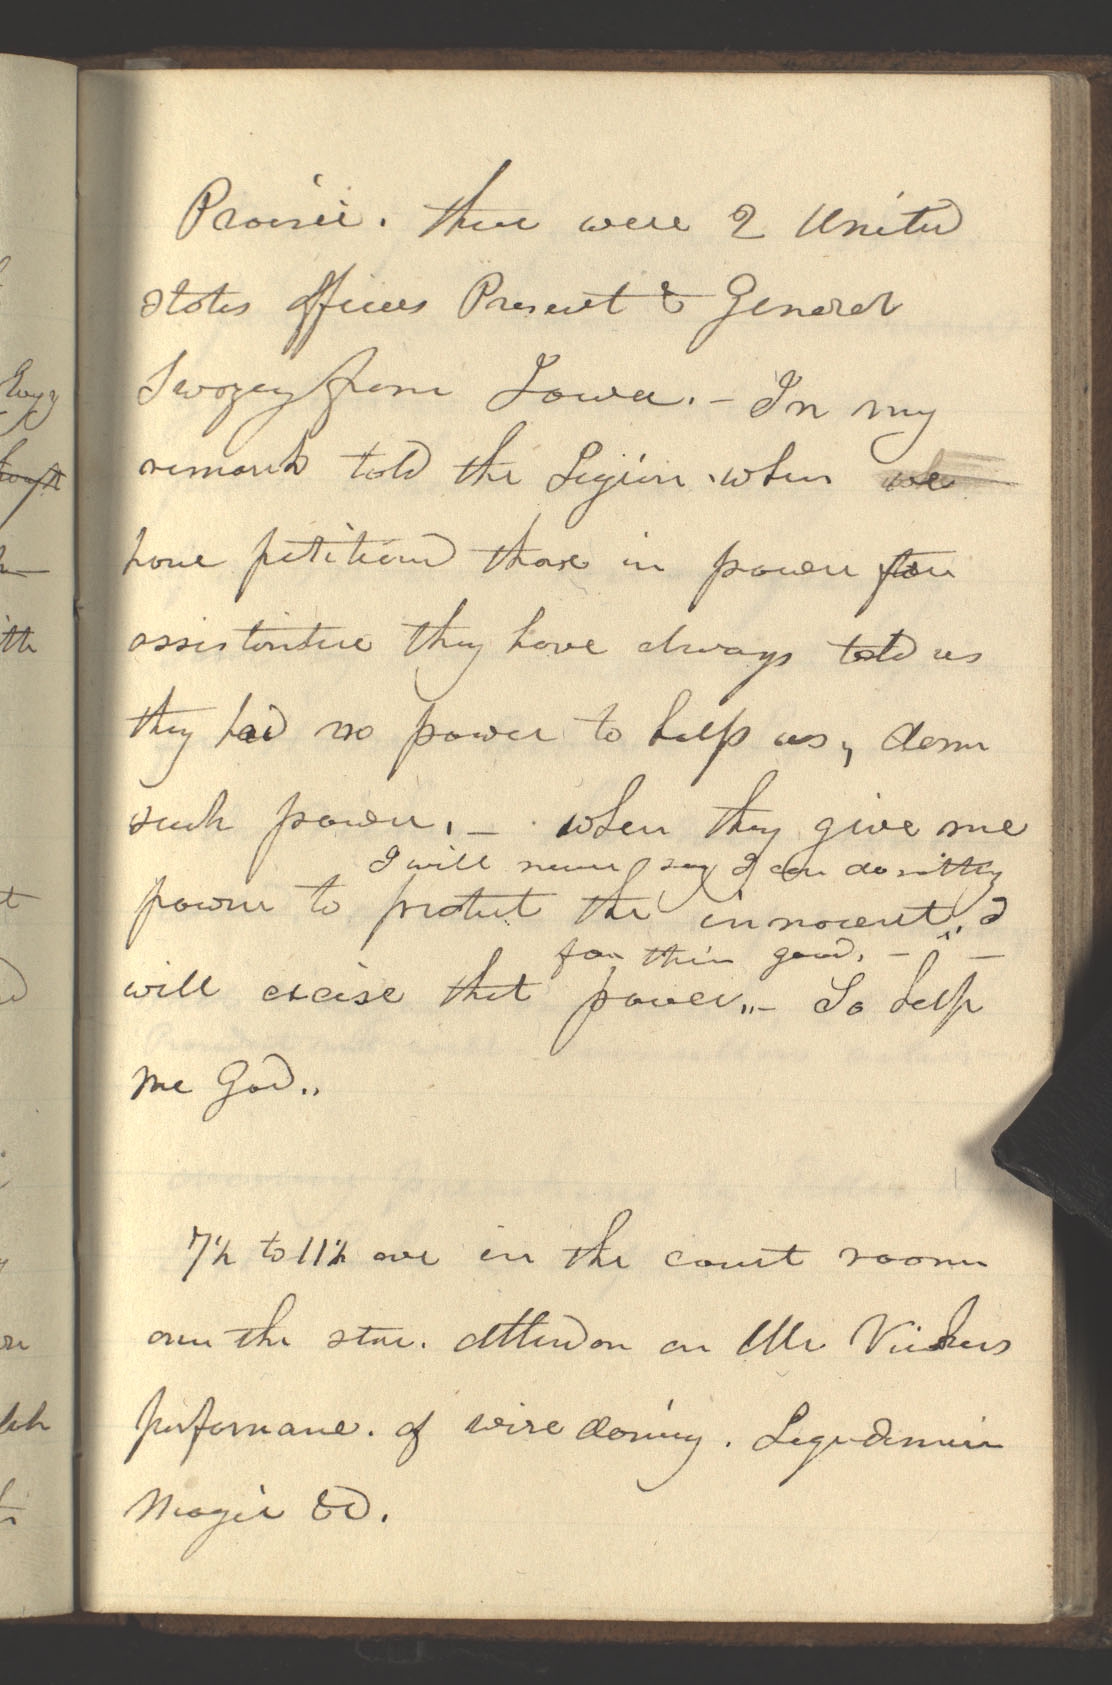 Prairie. there were 2 United
states officers Present & General
Swozey from Iowa. - In my
remark told the Legion. when we
have petitiond those in power for
assistance they have always told us
they had no power to help us, damn
such power. - when they give me
I will never say I can do nothing
power to protect the innocent. I
for their good. -
will excise that power. - So help
me God.
7½ to 11½ eve in the court room
over the store. attend on Mr Vickers
performance. of wire dancing. Legerdemain
Magic &c.
Evy
ith